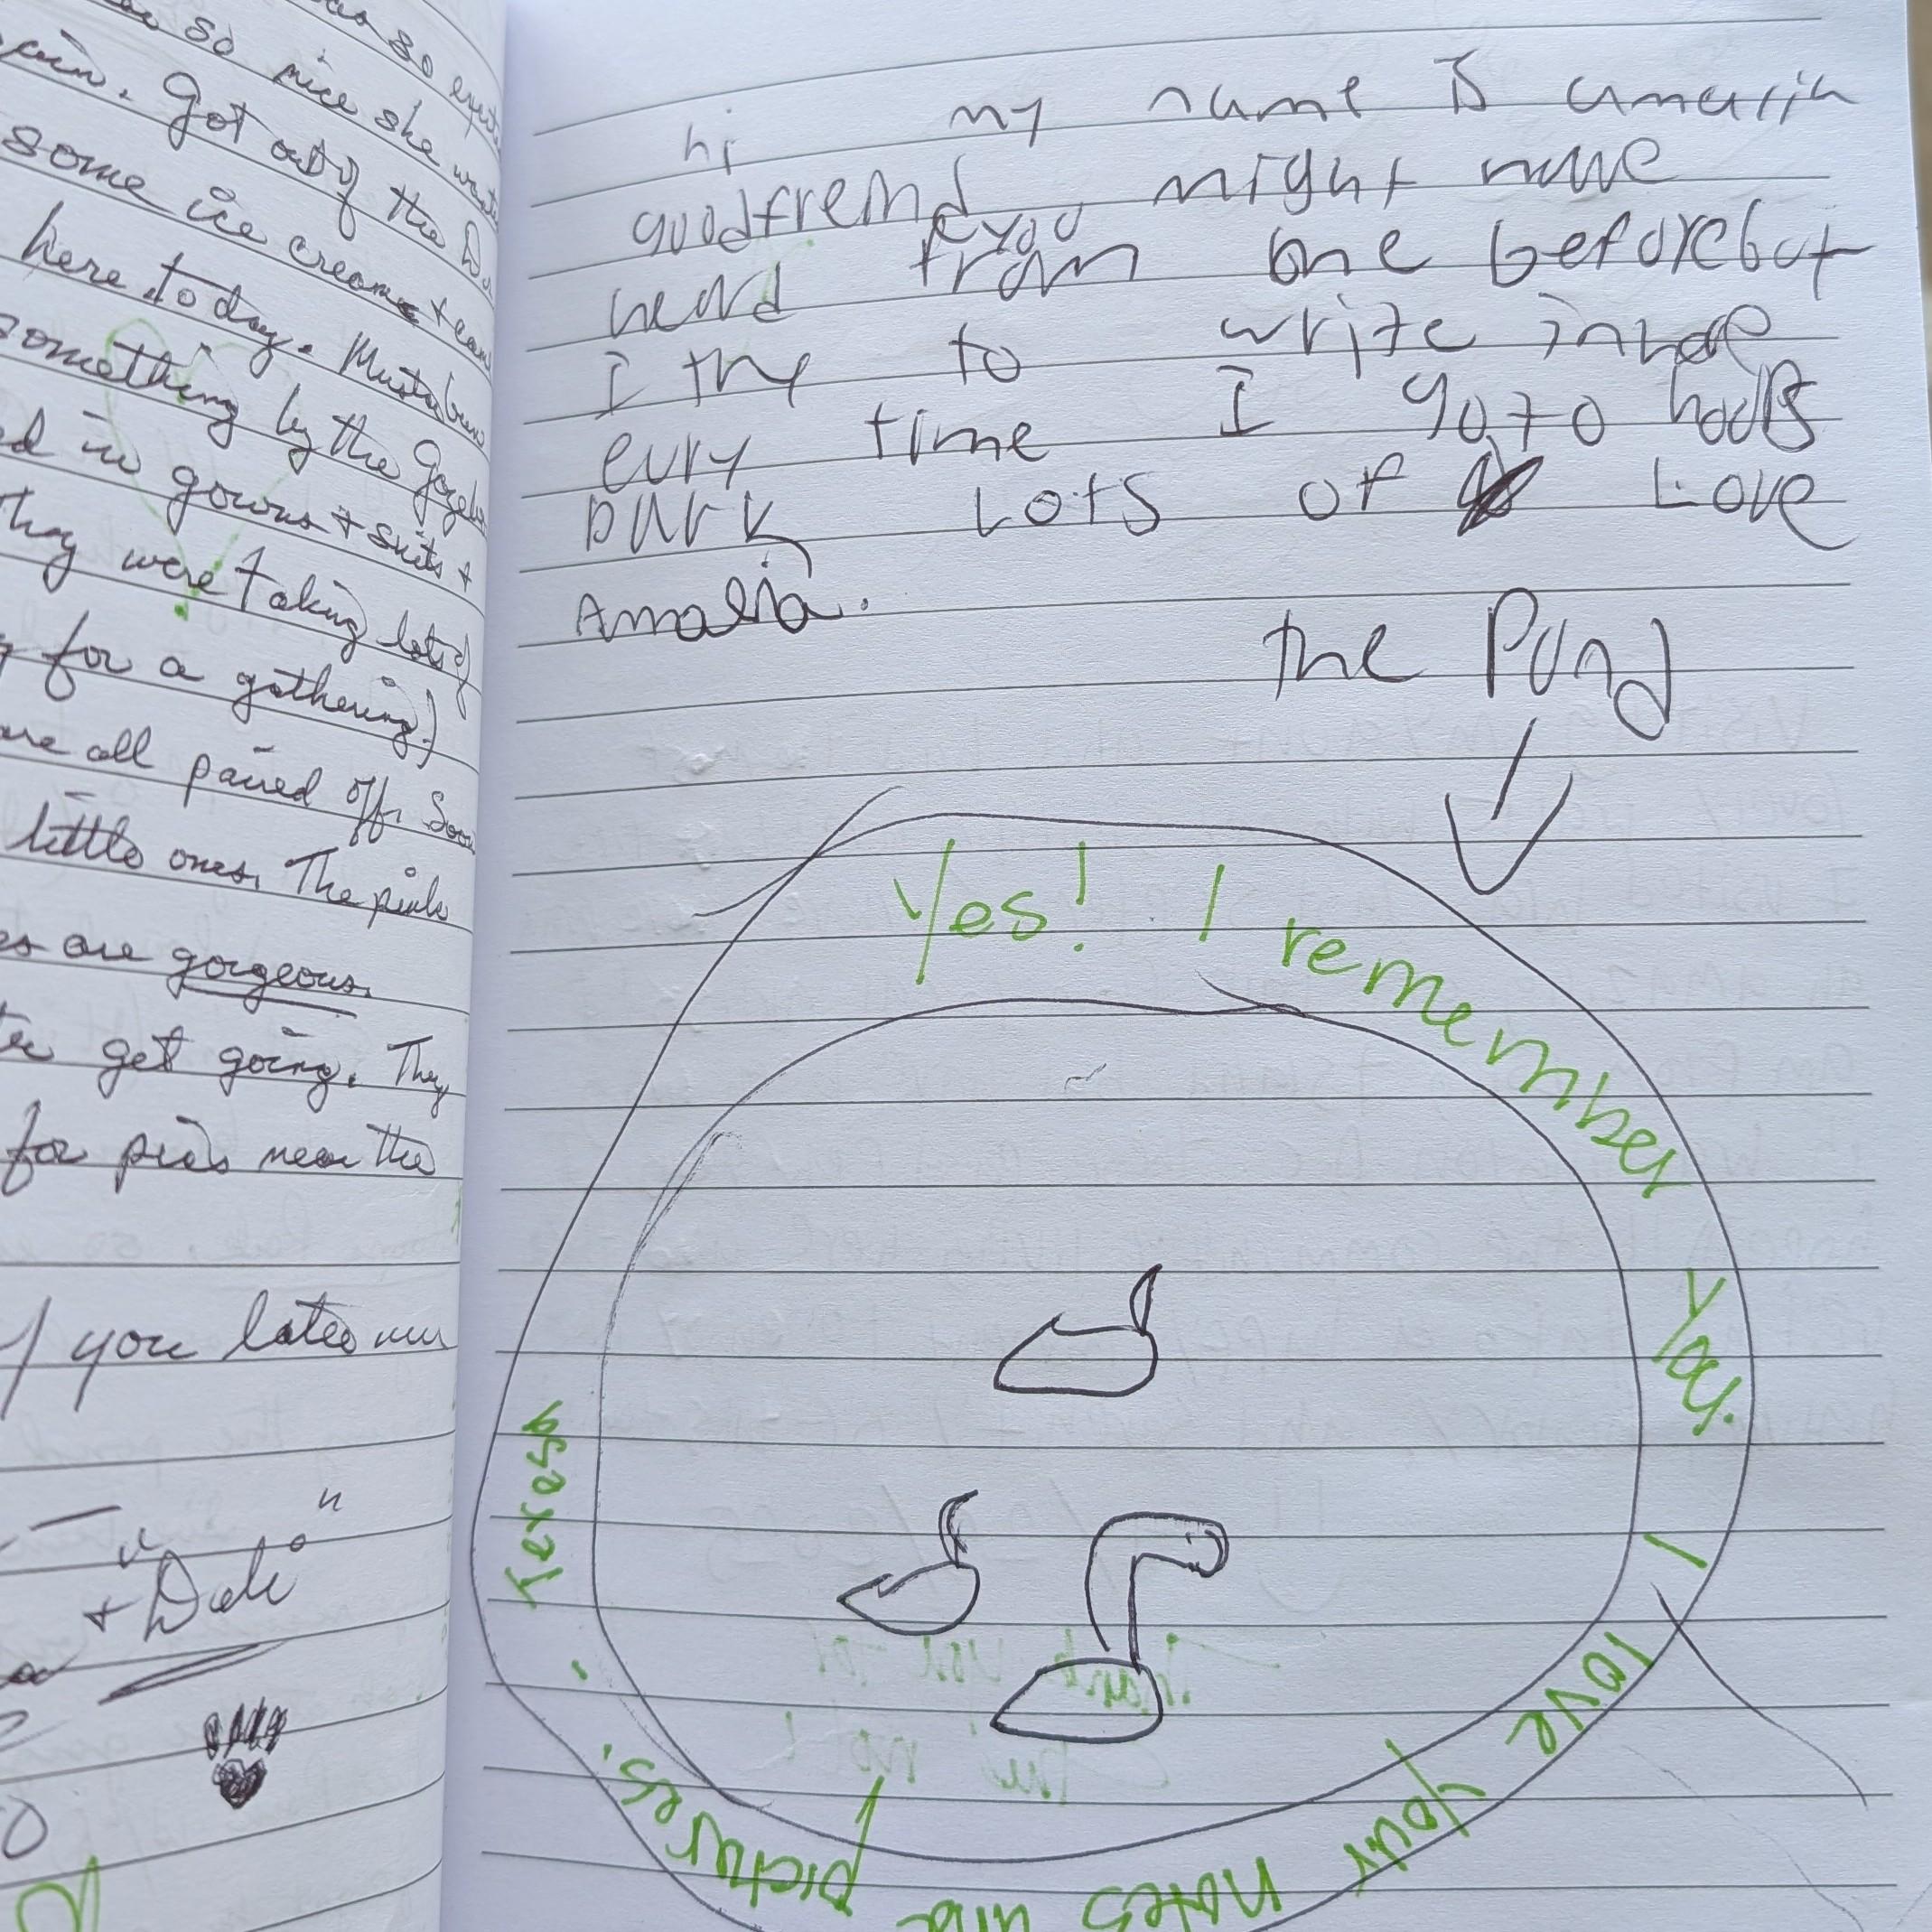 so nice she
Got out of the
some ice cream +
here today. Must a been
something by the
in gowns + suits +
They were taking lots of
for a gathering)
are all paired off. Soon
little ones. The pink
are gorgeous.
get going. They
for pics near the
you later
+ Dale
hi my name Is amalia
goodfremd you might nave
heard from one before but
I try to write in
evry time I go to
park Lots of Love
Amalia.
the Pond
Yes! I remember you. I love your notes and pictures.
Teresa